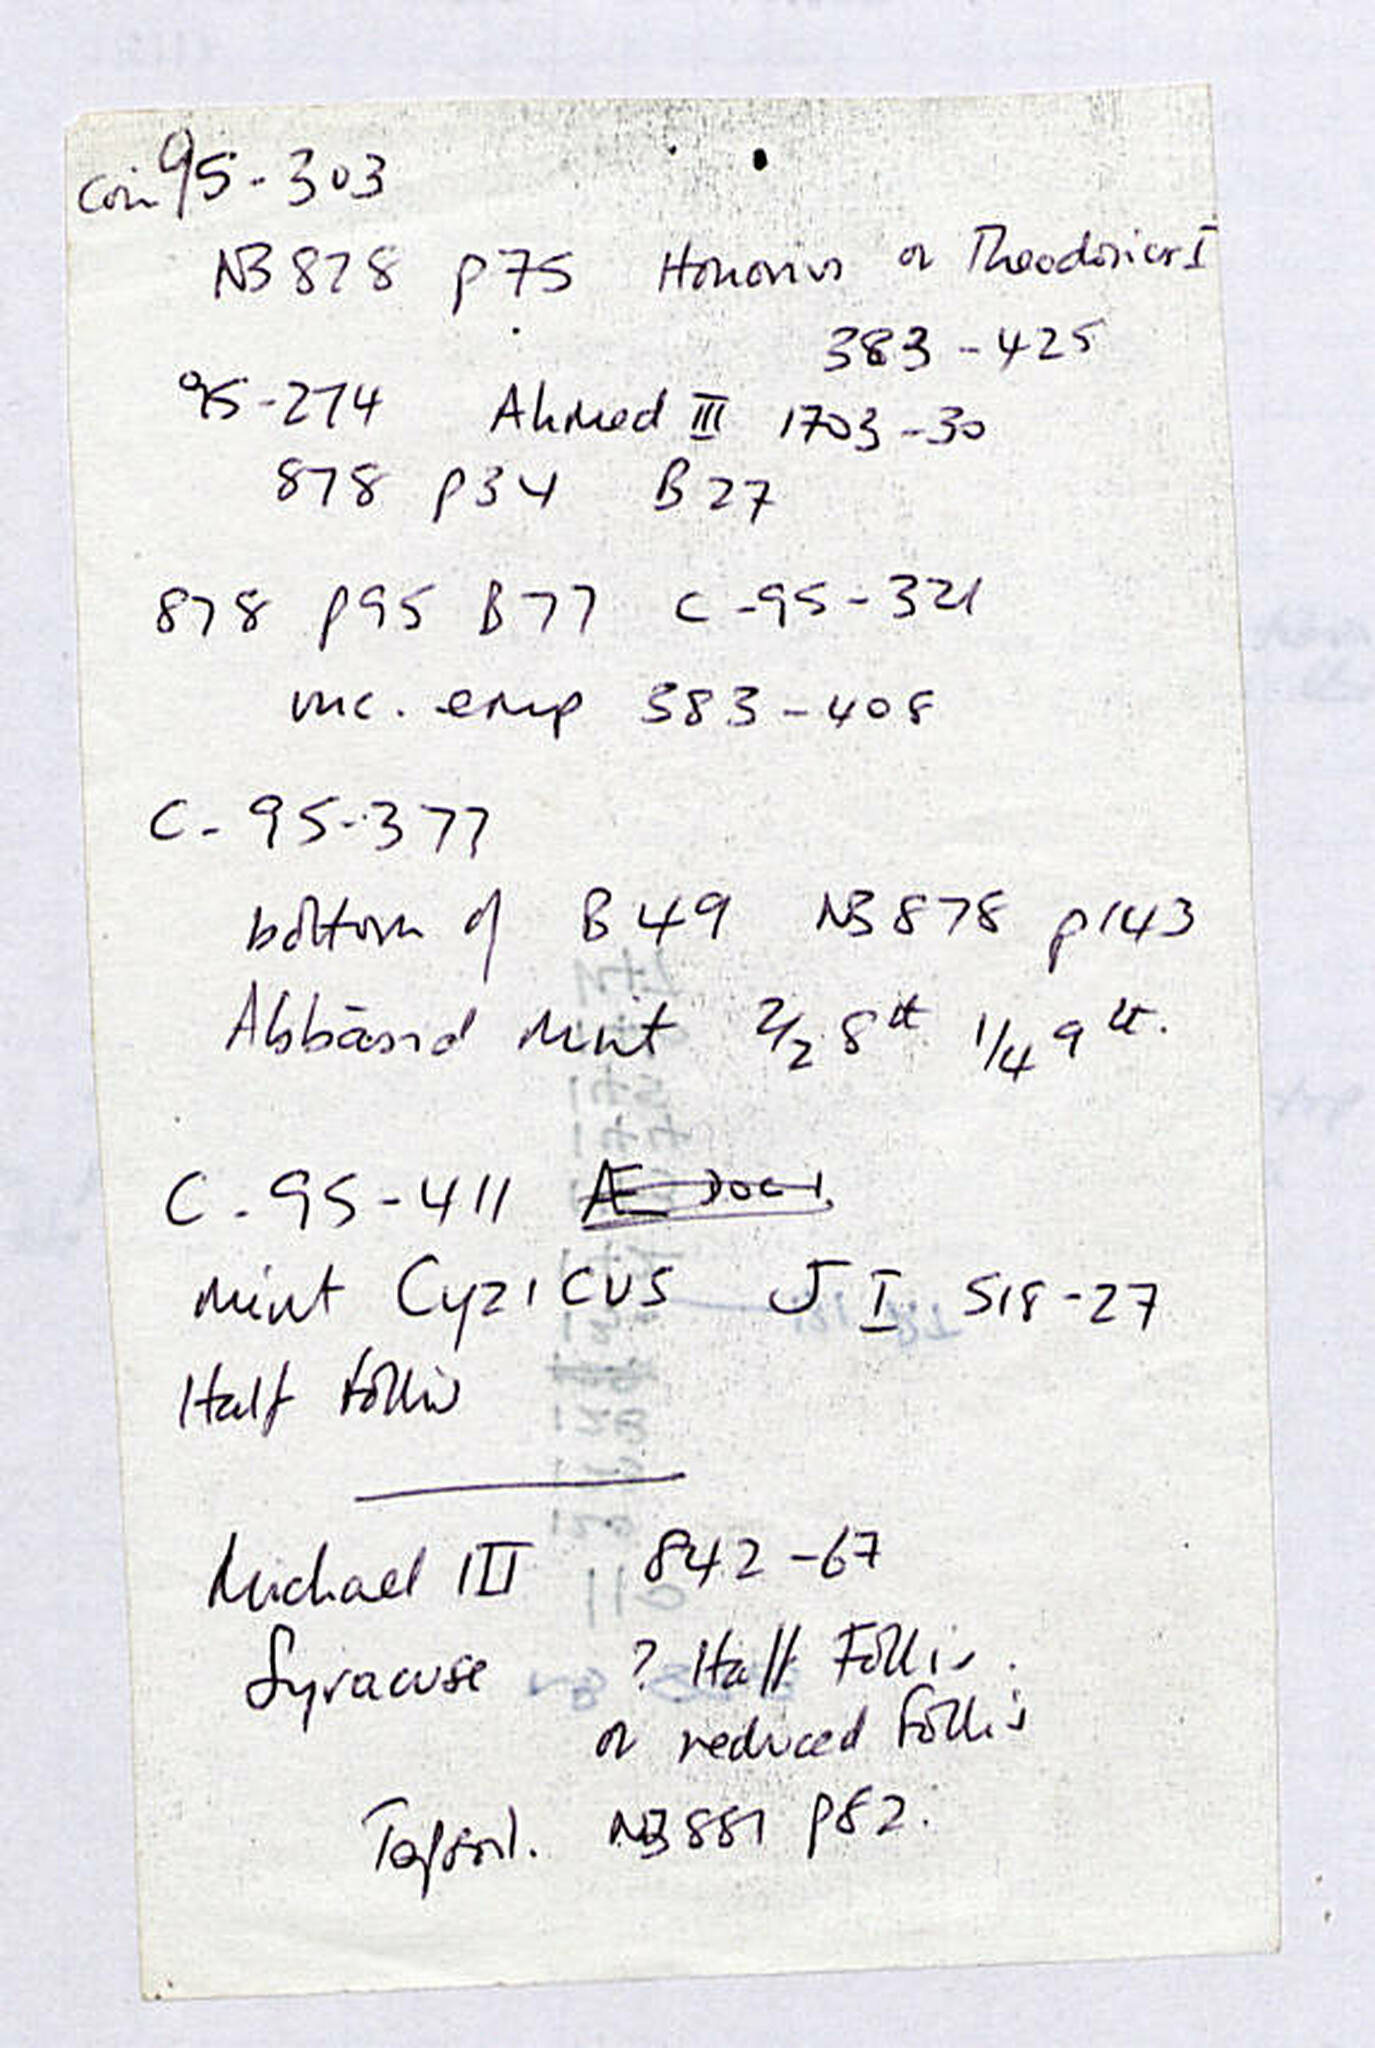 Coin 95-303
NB 878 p75 Honorius or Theodosius I
383-425
95-274 Ahmed III 1703-30
878 p34 B27
878 p95 B77 C-95-321
unc. emp 383-408
C-95-377
bottom of B49 NB 878 p143
Abbāsid Mint 2/2 8th 1/4 9th.
C-95-411 AE
Mint Cyzicus J I 518-27
Half follis
Michael III 842-67
Syracuse ? Half Follis.
or reduced follis
Topsoil. NB 881 p82.